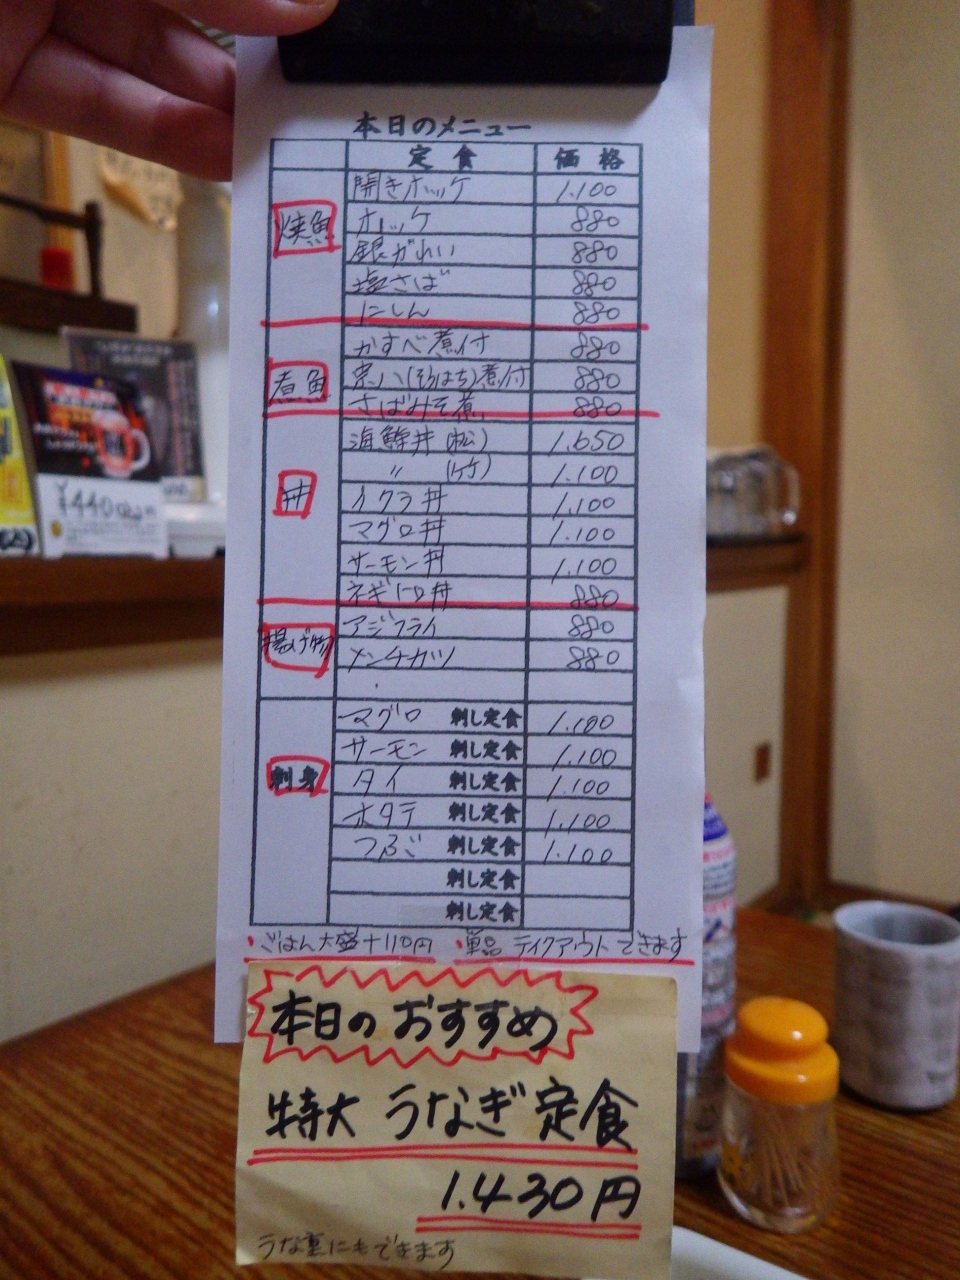 本日のメニュー
定食 価格
焼魚
開きホッケ 1.100
ホッケ 880
銀がれい 880
塩さば 880
にしん 880
煮魚
かすべ煮付 880
宗八(そうはち)煮付 880
さばみそ煮 880
丼
海鮮丼(松) 1.650
〃 (竹) 1.100
イクラ丼 1.100
マグロ丼 1.100
サーモン丼 1.100
ネギトロ丼 880
揚げ物
アジフライ 880
メンチカツ 880
刺身
マグロ 刺し定食 1.100
サーモン 刺し定食 1.100
タイ 刺し定食 1.100
ホタテ 刺し定食 1.100
つぶご 刺し定食 1.100
刺し定食
刺し定食
・ごはん大盛+110円 ・単品 テイクアウトできます
本日のおすすめ
特大 うなぎ定食
1.430円
うな重にもできます
¥440